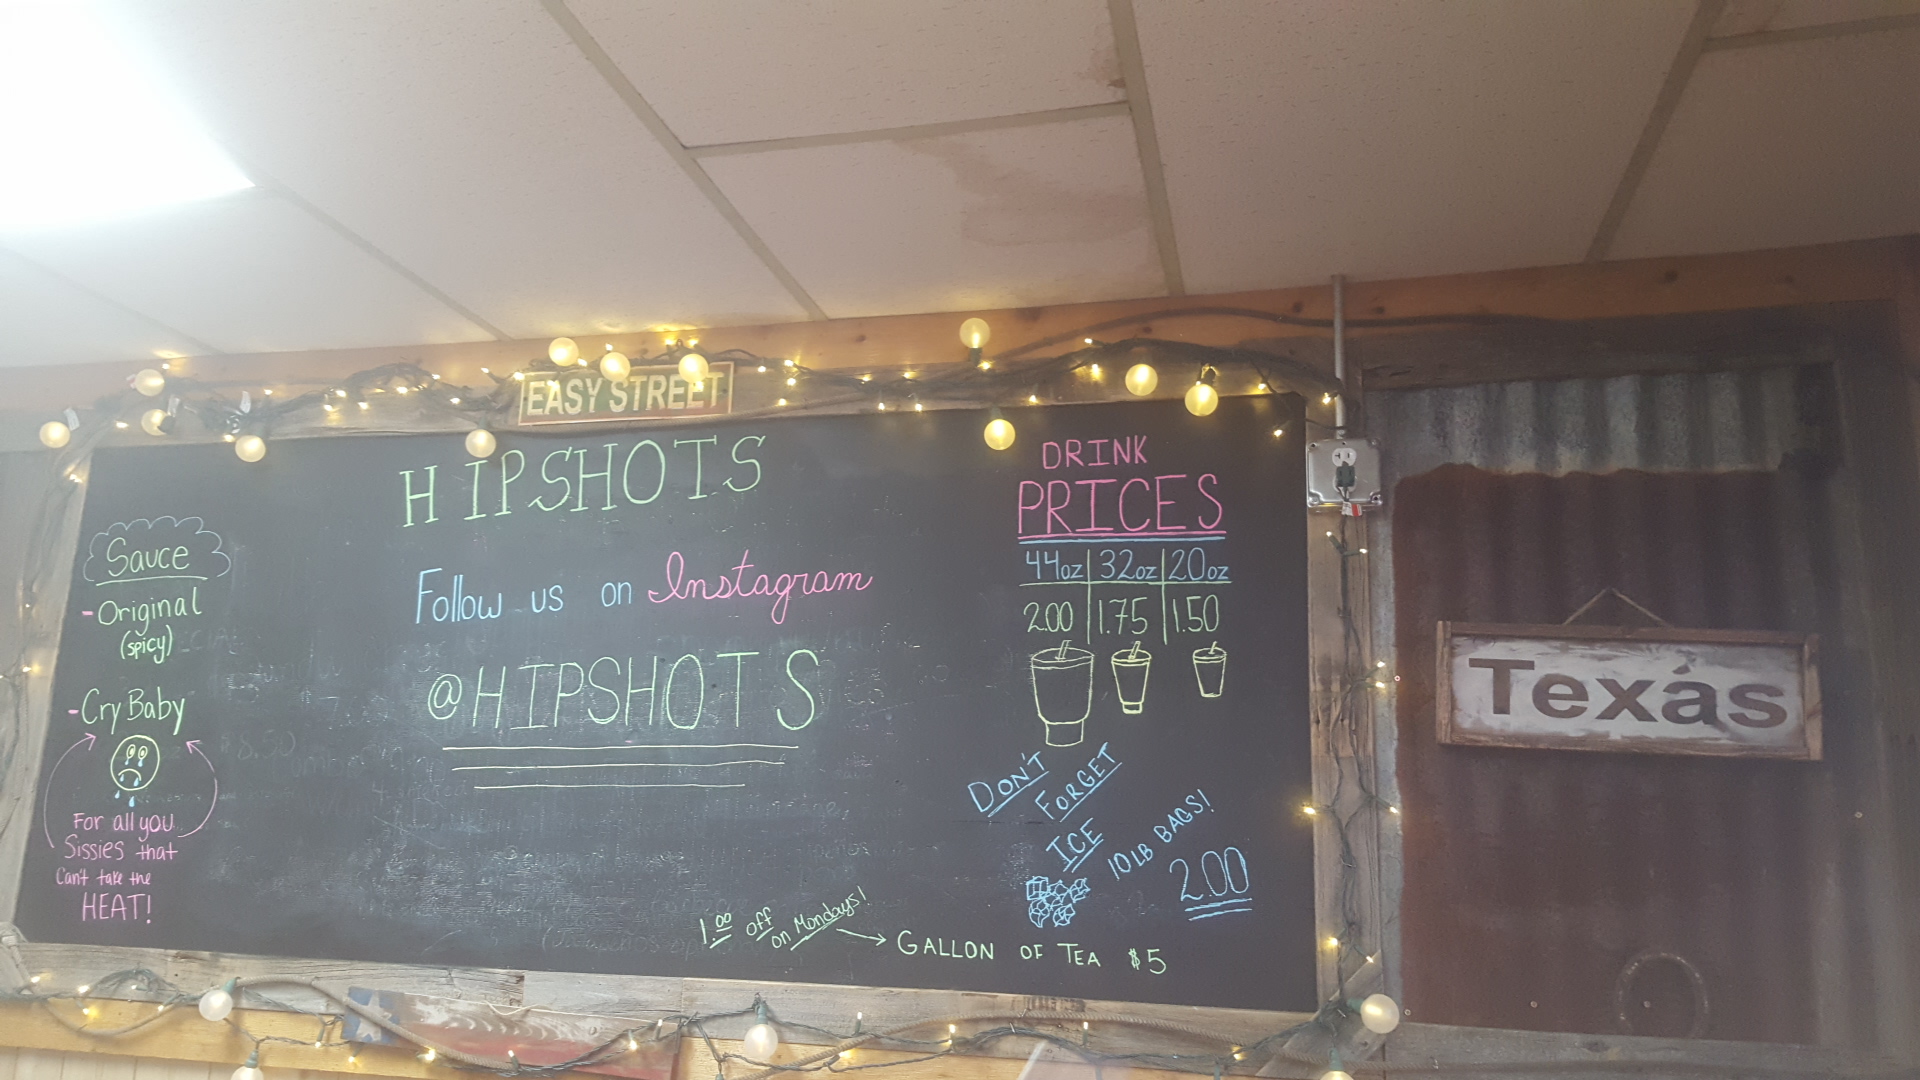 EASY STREET
HIPSHOTS
Follow us on Instagram
@HIPSHOTS
Sauce
-Original
(spicy)
-Cry Baby
For all you
Sissies that
Can't take the
HEAT!
DRINK
PRICES
44oz 32oz 20oz
2.00 1.75 1.50
DON'T
FORGET
ICE
10 LB BAGS!
2.00
1.00 off
on Mondays!
GALLON OF TEA $5
Texas